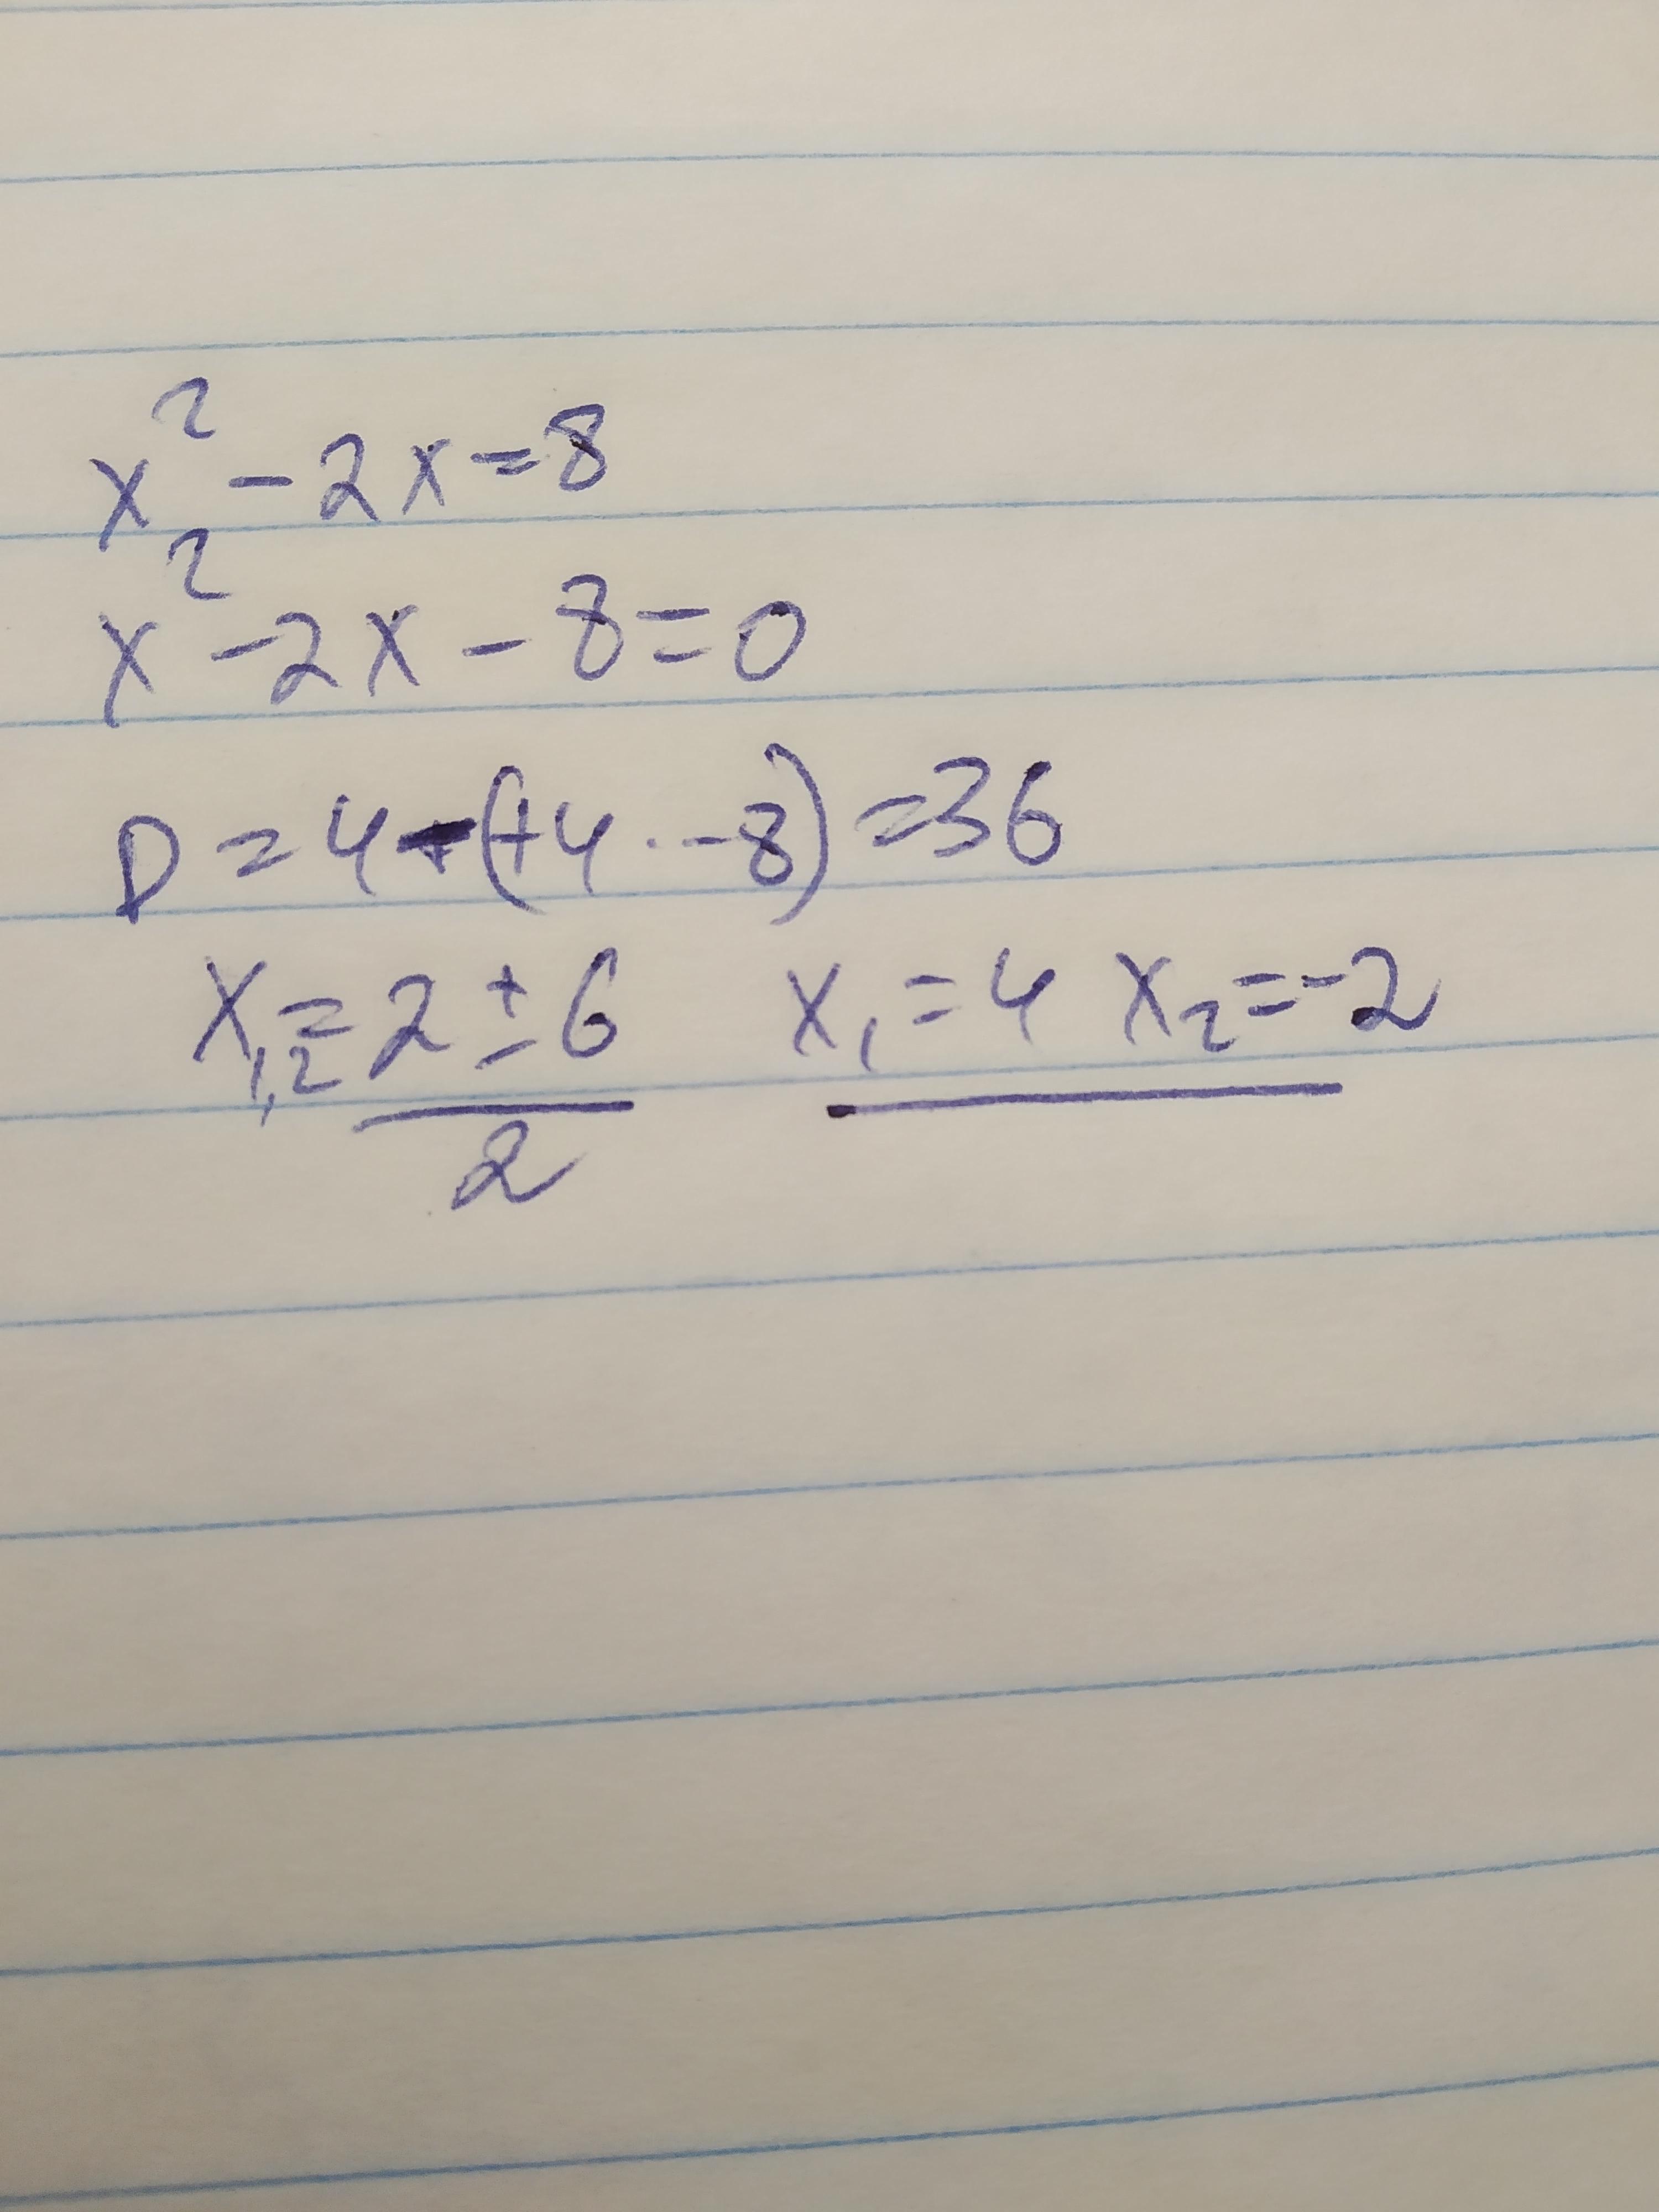 x² - 2x = 8
x² - 2x - 8 = 0
D = 4 - (+4 · -8) = 36
x₁,₂ = (2 ± 6) / 2    x₁ = 4  x₂ = -2